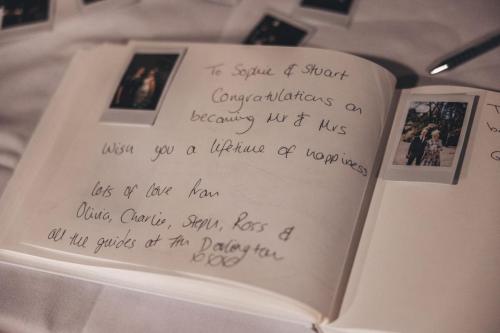 To Sophie & Stuart
Congratulations on
becoming Mr & Mrs
Wish you a lifetime of happiness
lots of love from
Olivia, Charlie, Steph, Ross &
all the guides at 7th Darlington
xoxo